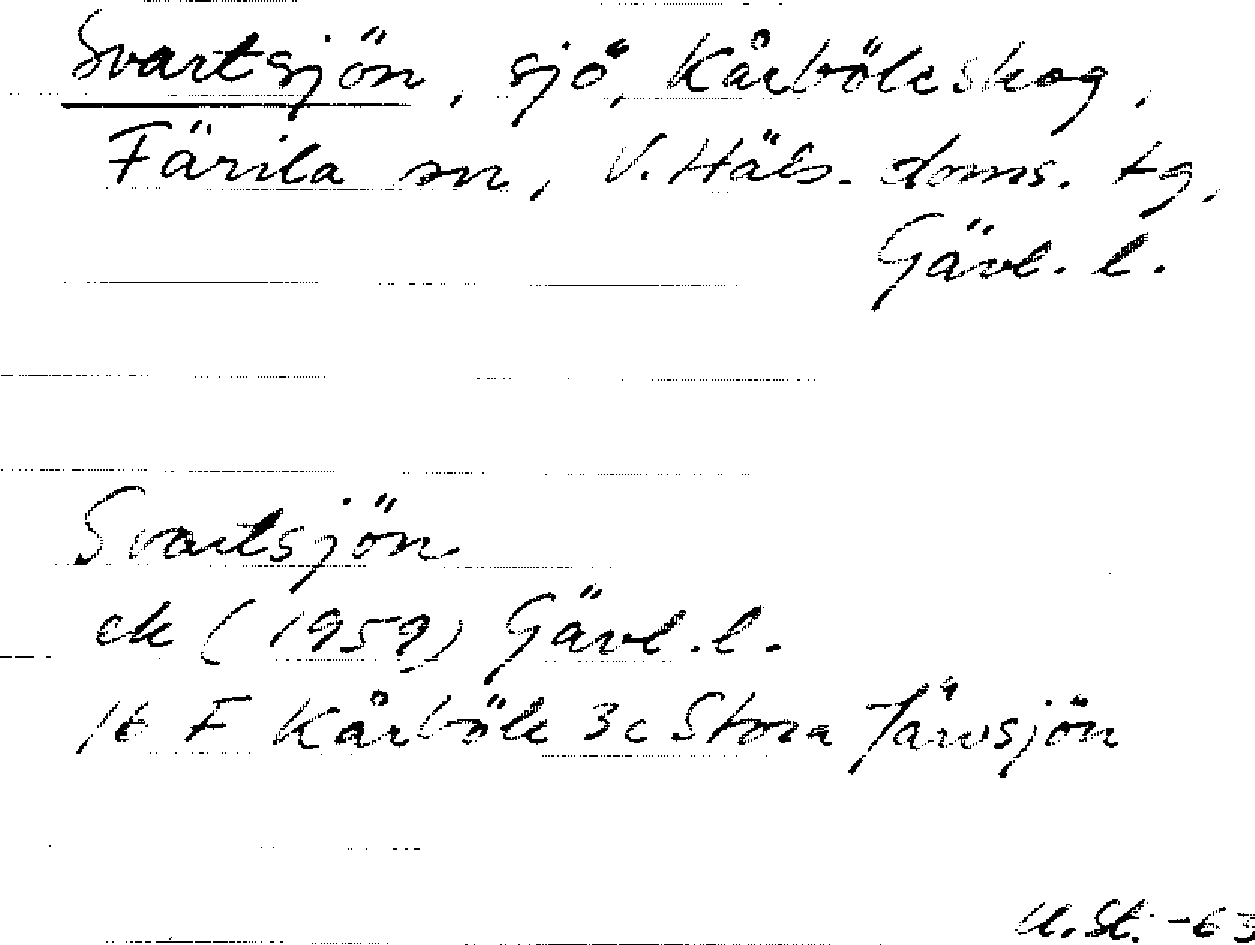 Svartsjön, sjö, Kårböleskog,
Färila sn, V. Häls. doms. tg,
Gävl. l.
Svartsjön
ek (1959) Gävl. l.
16 F Kårböle 3c Stora Järvsjön
U. St. -63